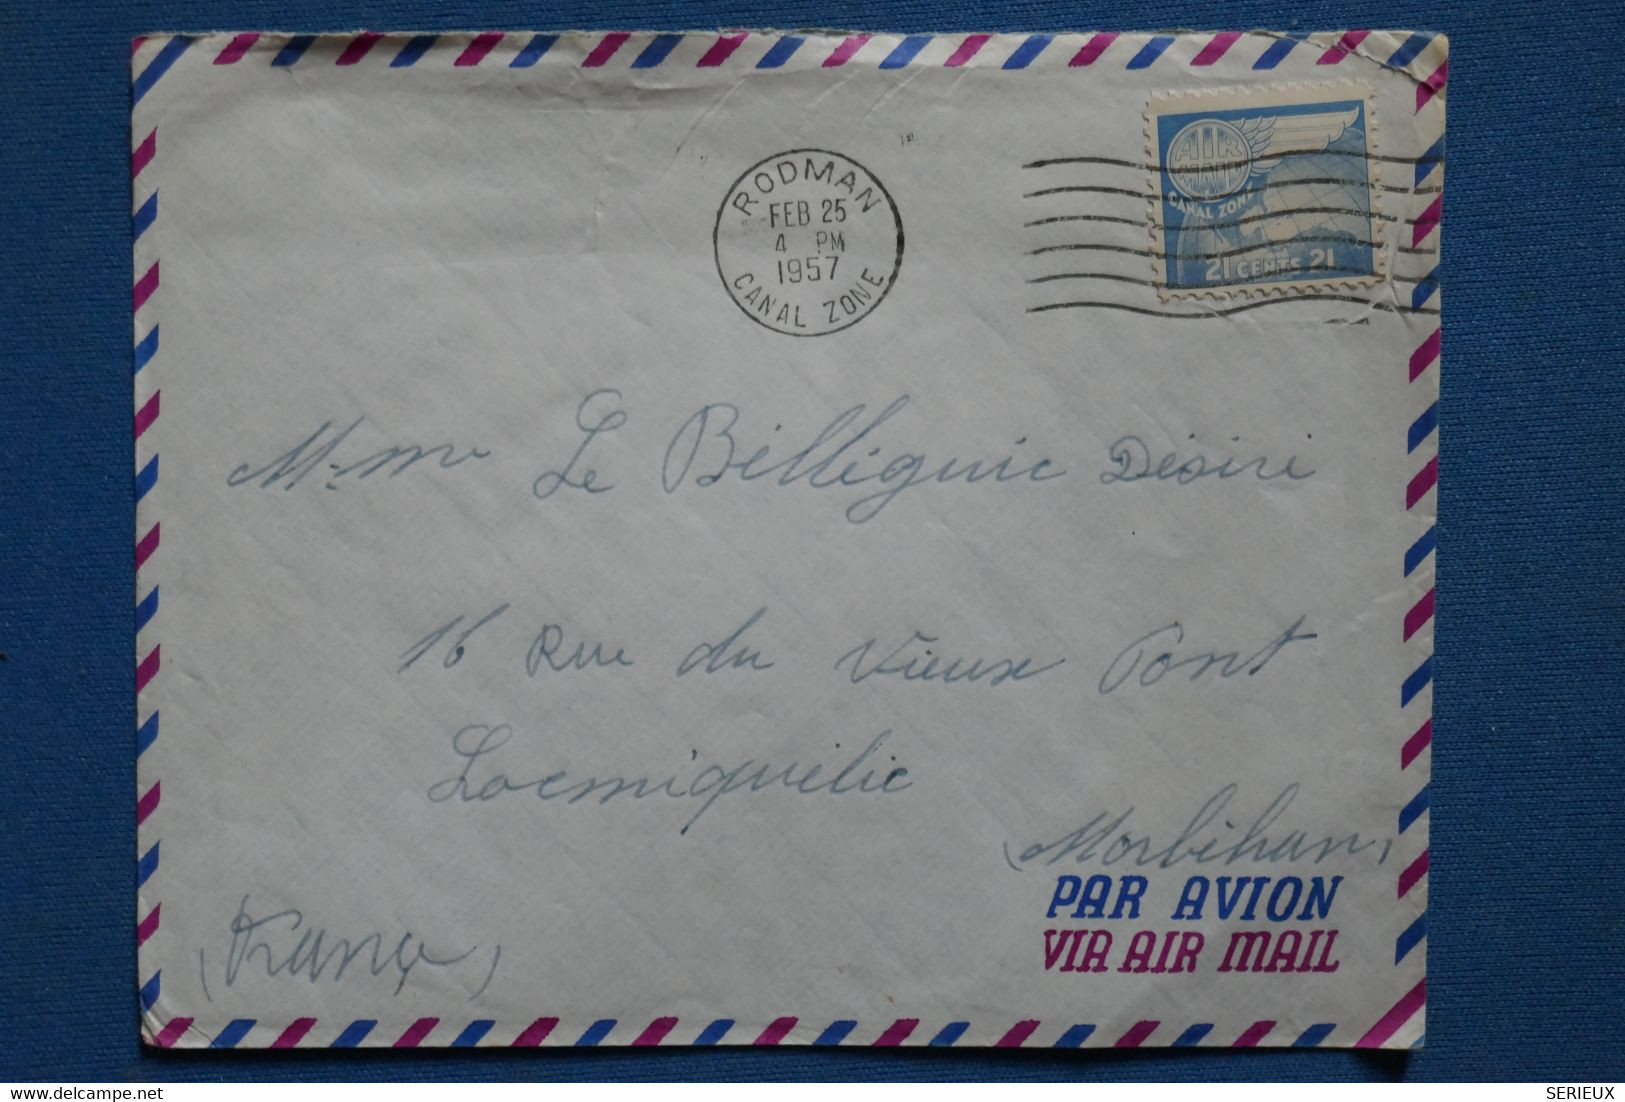 RODMAN
FEB 25
4 PM
1957
CANAL ZONE
AIR
MAIL
CANAL ZONE
21 CENTS 21
Mme Le Bélléguic Désiré
16 Rue du Vieux Pont
Locmiquélic
(Morbihan)
(France)
PAR AVION
VIA AIR MAIL
delcampe.net
SERIEUX